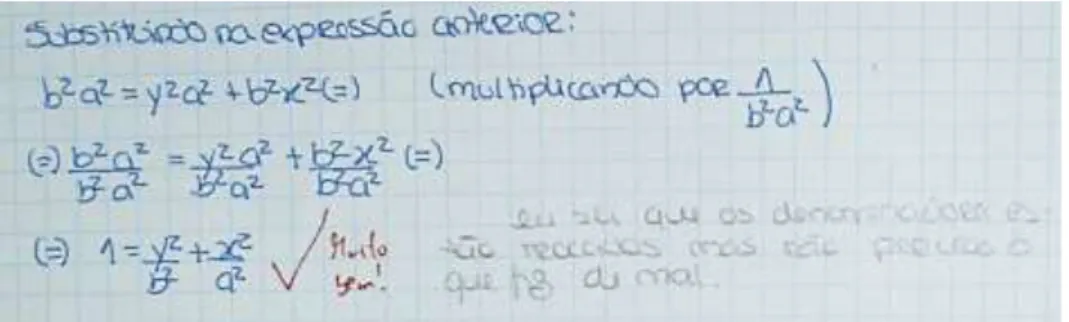 Substituindo na expressão anterior:
b²a² = y²a² + b²x² (=) (multiplicando por 1/b²a²)
(=) b²a²/b²a² = y²a²/b²a² + b²x²/b²a² (=)
(=) 1 = y²/b² + x²/a² ✓ Muito bem!
eu sei que os denominadores es-
tão trocados mas não percebo o
que fiz de mal.